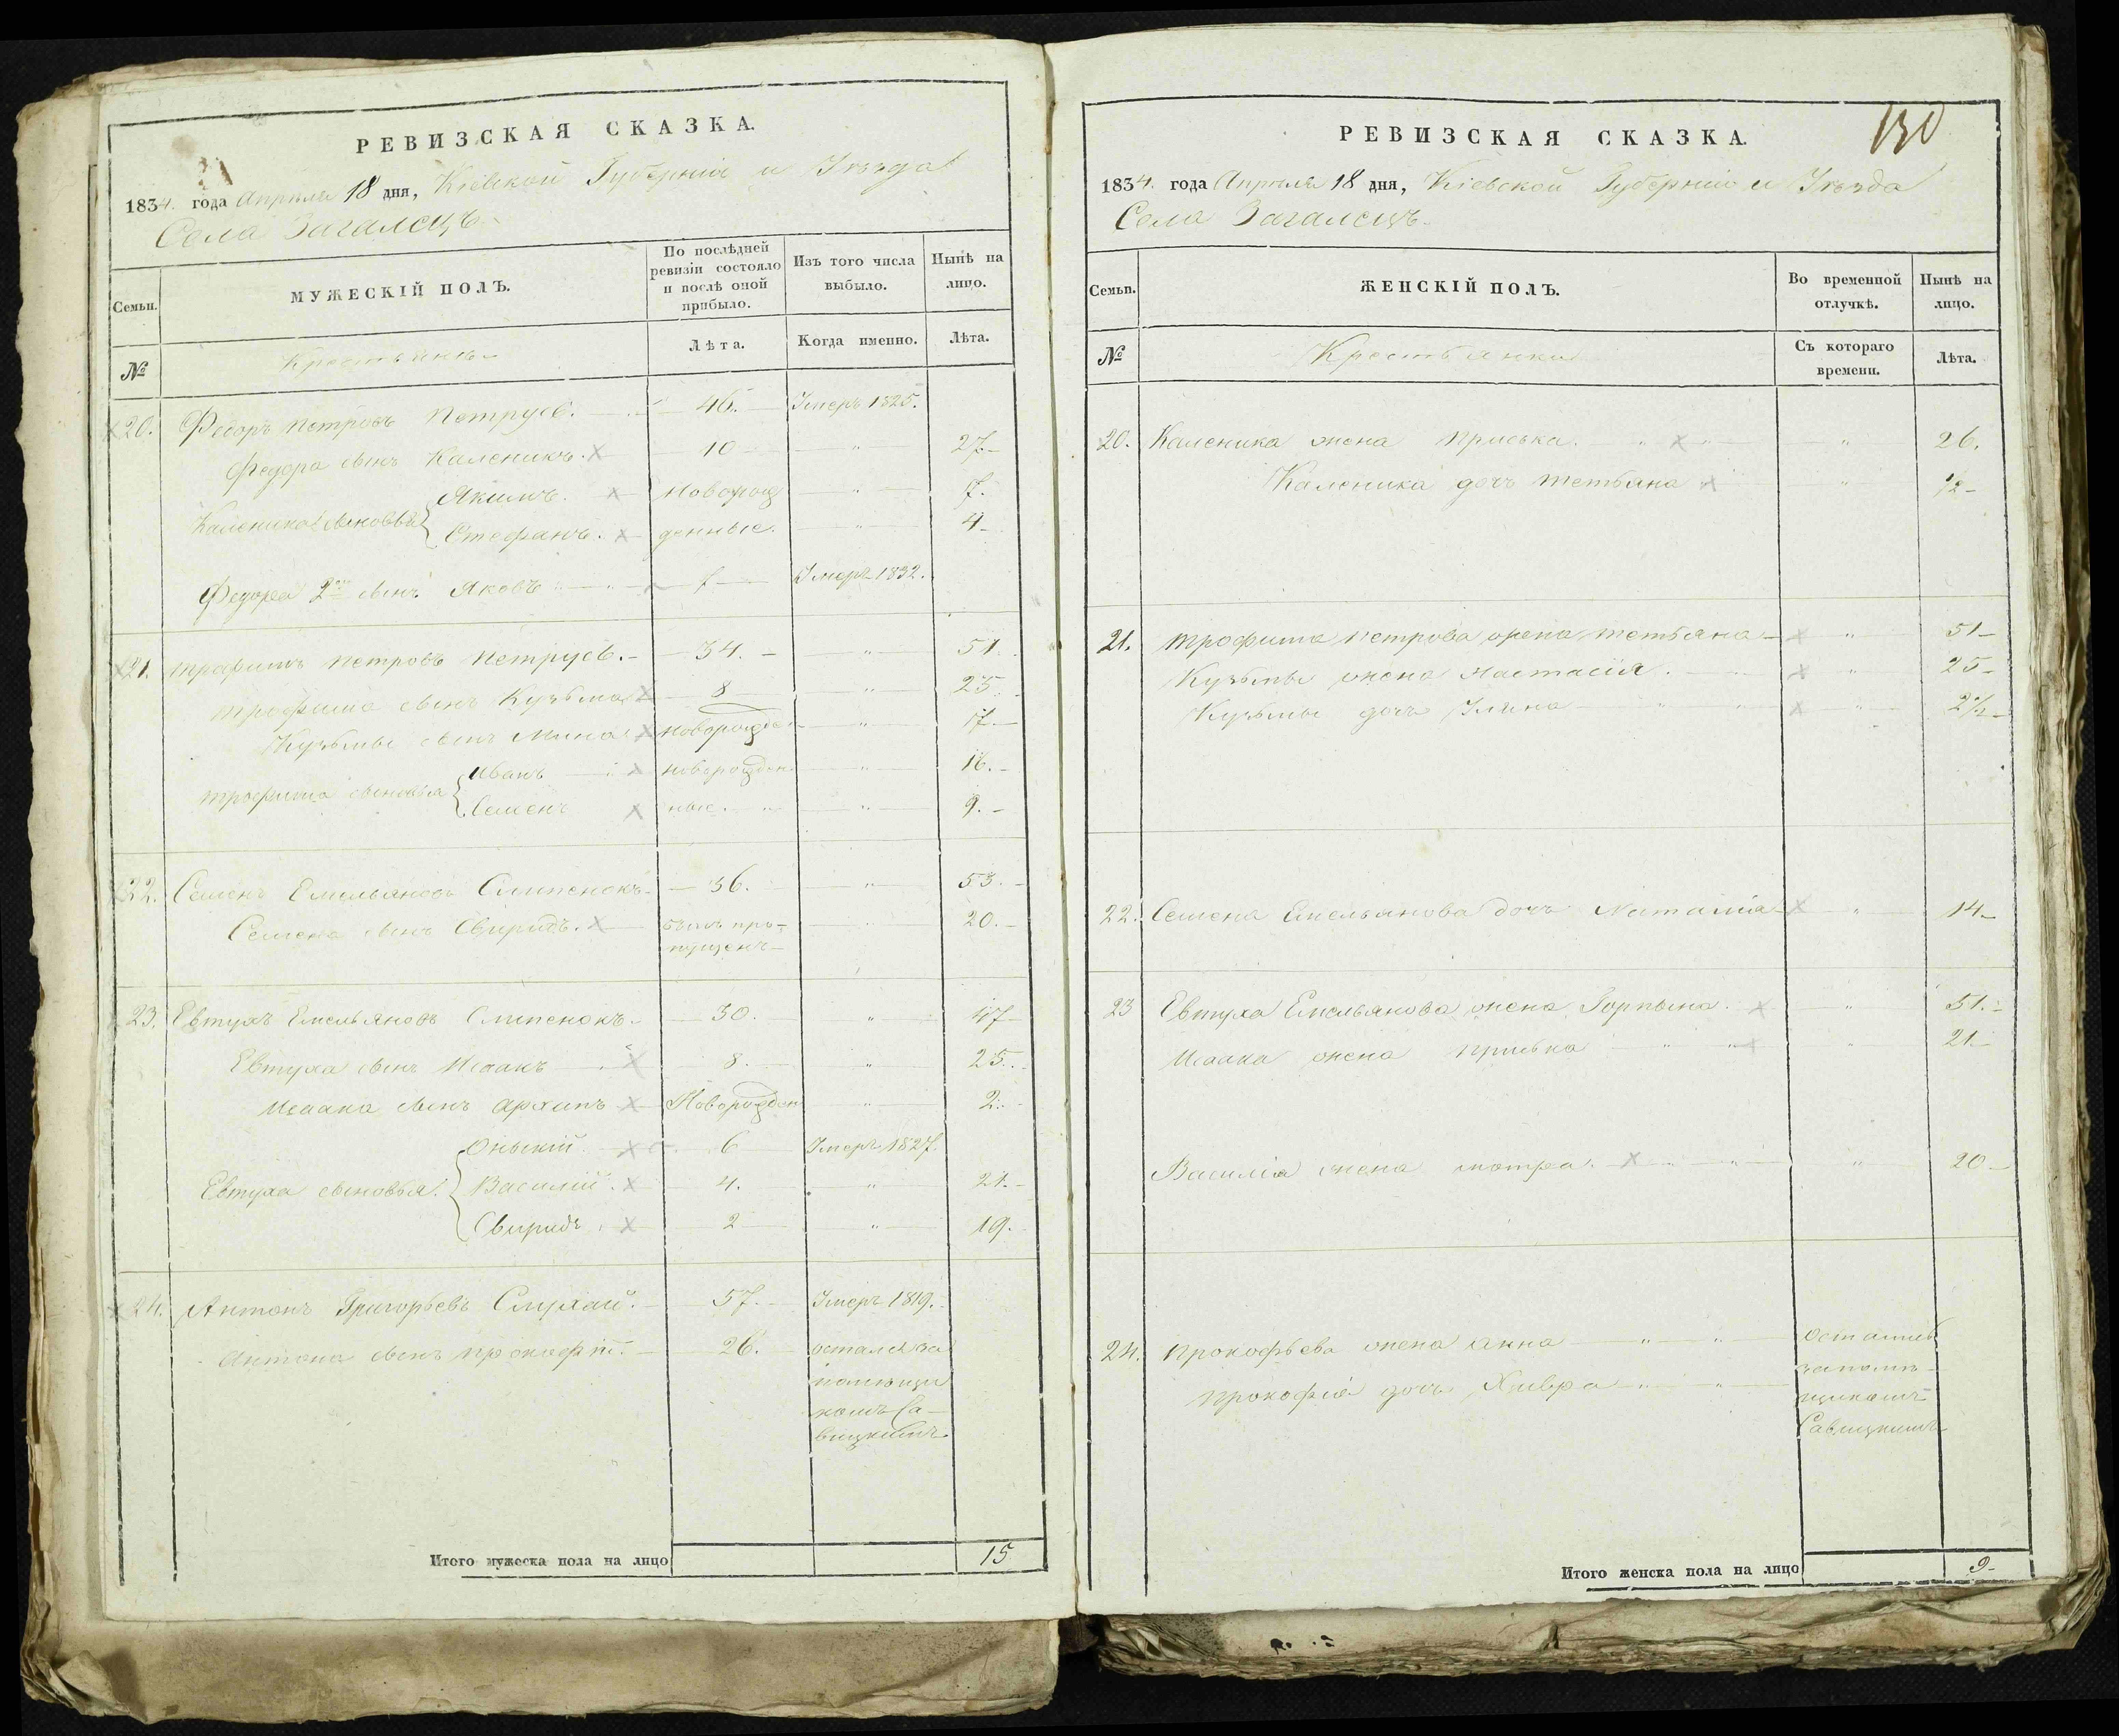 РЕВИЗСКАЯ СКАЗКА.
1834. года Апрѣля 18 дня, Кіевской Губерніи и Уѣзда
Села Загалецъ
Семьи.
МУЖЕСКІЙ ПОЛЪ.
По послѣдней ревизіи состояло и послѣ оной прибыло.
Изъ того числа выбыло.
Нынѣ на лицо.
№
Крестьяне
Лѣта.
Когда именно.
Лѣта.
20. Федоръ Петровъ Петрусь. 46. Умеръ 1825.
Федора сынъ Каленикъ. 10 " 27
Каленика сыновья Якимъ. Новорож " 7.
Стефанъ. денные. " 4
Федора 2й сынъ Яковъ " 7 Умеръ 1832.
21. Трофимъ Петровъ Петрусь. 34. " 51.
Трофима сынъ Кузьма 8 " 25.
Кузьмы сынъ Мина новорожден "
Трофима сыновья Иванъ новорожден " 16.
Семенъ ные. " " 9.
22. Семенъ Емельяновъ Слипенокъ. 36. " 53.
Семена сынъ Свиридъ. былъ про- " 20.
пущенъ
23. Евтухъ Емельяновъ Слипенокъ. 30. " 47
Евтуха сынъ Исаакъ 8. " 25.
Исаака сынъ Архипъ Новорожден " 2.
Евтуха сыновья. 6 Умеръ 1827.
Василій. 4. " 21.
Свиридъ 2 " 19.
24. Антонъ Григорьевъ Слухай. 57. Умеръ 1819.
Антона сынъ Прокофій. 26. остался за
помѣщи
комъ Са-
вицкимъ
Итого мужеска пола на лицо 15
130
РЕВИЗСКАЯ СКАЗКА.
1834. года Апрѣля 18 дня, Кіевской Губерніи и Уѣзда
Села Загалецъ
Семьи.
ЖЕНСКІЙ ПОЛЪ.
Во временной отлучкѣ.
Нынѣ на лицо.
№
Крестьянки
Съ котораго времени.
Лѣта.
20. Каленика жена Приська. " " " 26.
Каленика дочь Тетьяна " 1/2
21. Трофима Петрова жена Тетьяна " 51
Кузьмы жена Настасія. " 25
Кузьмы дочь Уляна " " " 2 1/2
22. Семена Емельянова дочь Наталія " 14
23 Евтуха Емельянова жена Горпына. " 51.
Исаака жена Приська " " " 21
Василія жена мотря. " " " 20
24. Прокофьева жена Анна " " остались
Прокофія дочь Хивря " " за помѣ-
щикомъ
Савицкимъ
Итого женска пола на лицо 9